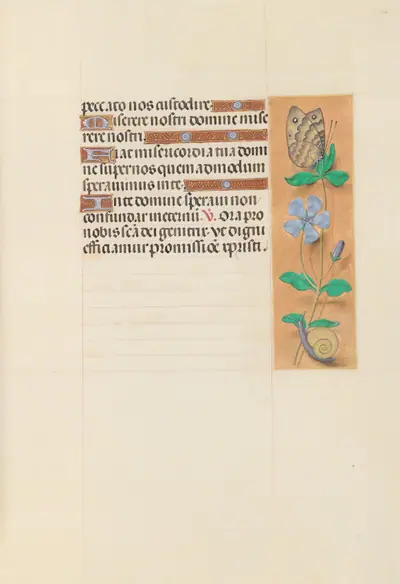 peccato nos custodire.
Miserere nostri domine mise
rere nostri.
Fiat misericordia tua domi
ne super nos quemadmodum
speravimus in te.
In te domine speravi non
confundar in eternū. V̄. Ora pro
nobis scā dei genitrix. Ut digni
efficiamur promissiōe xpristi.